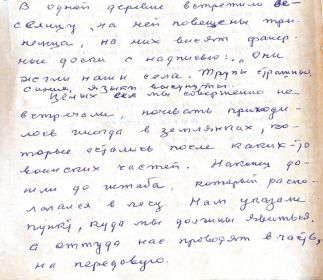 В одной деревне встретили ви-
селицу, на ней повешены три
немца, на них висят фанер-
ные доски с надписью: „Они
жгли наши села. Трупы страшные
синие, языки высунуты.
Целых сел мы совершенно не
встречали, ночевать приходи-
лось иногда в землянках, ко-
торые остались после каких-то
воинских частей. Наконец до-
шли до штаба, который распо-
лагался в лесу. Нам указали
пункт, куда мы должны явиться,
а оттуда нас проводят в часть,
на передовую.